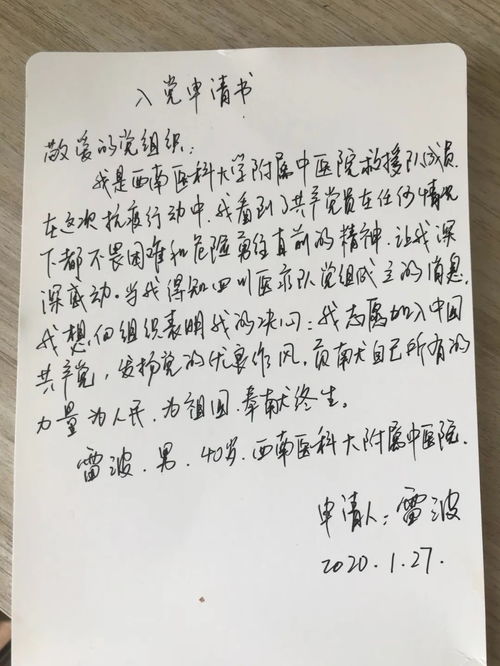 入党申请书
敬爱的党组织：
我是西南医科大学附属中医院救援队成员
在这次抗疫行动中，我看到了共产党员在任何情况
下都不畏困难和危险勇往直前的精神，让我深
深感动。当我得知四川医疗队党组成立的消息，
我想向组织表明我的决心：我志愿加入中国
共产党，发扬党的优良作风，贡献自己所有的
力量为人民，为祖国，奉献终生。
雷波，男，40岁，西南医科大附属中医院，
申请人：雷波
2020.1.27.